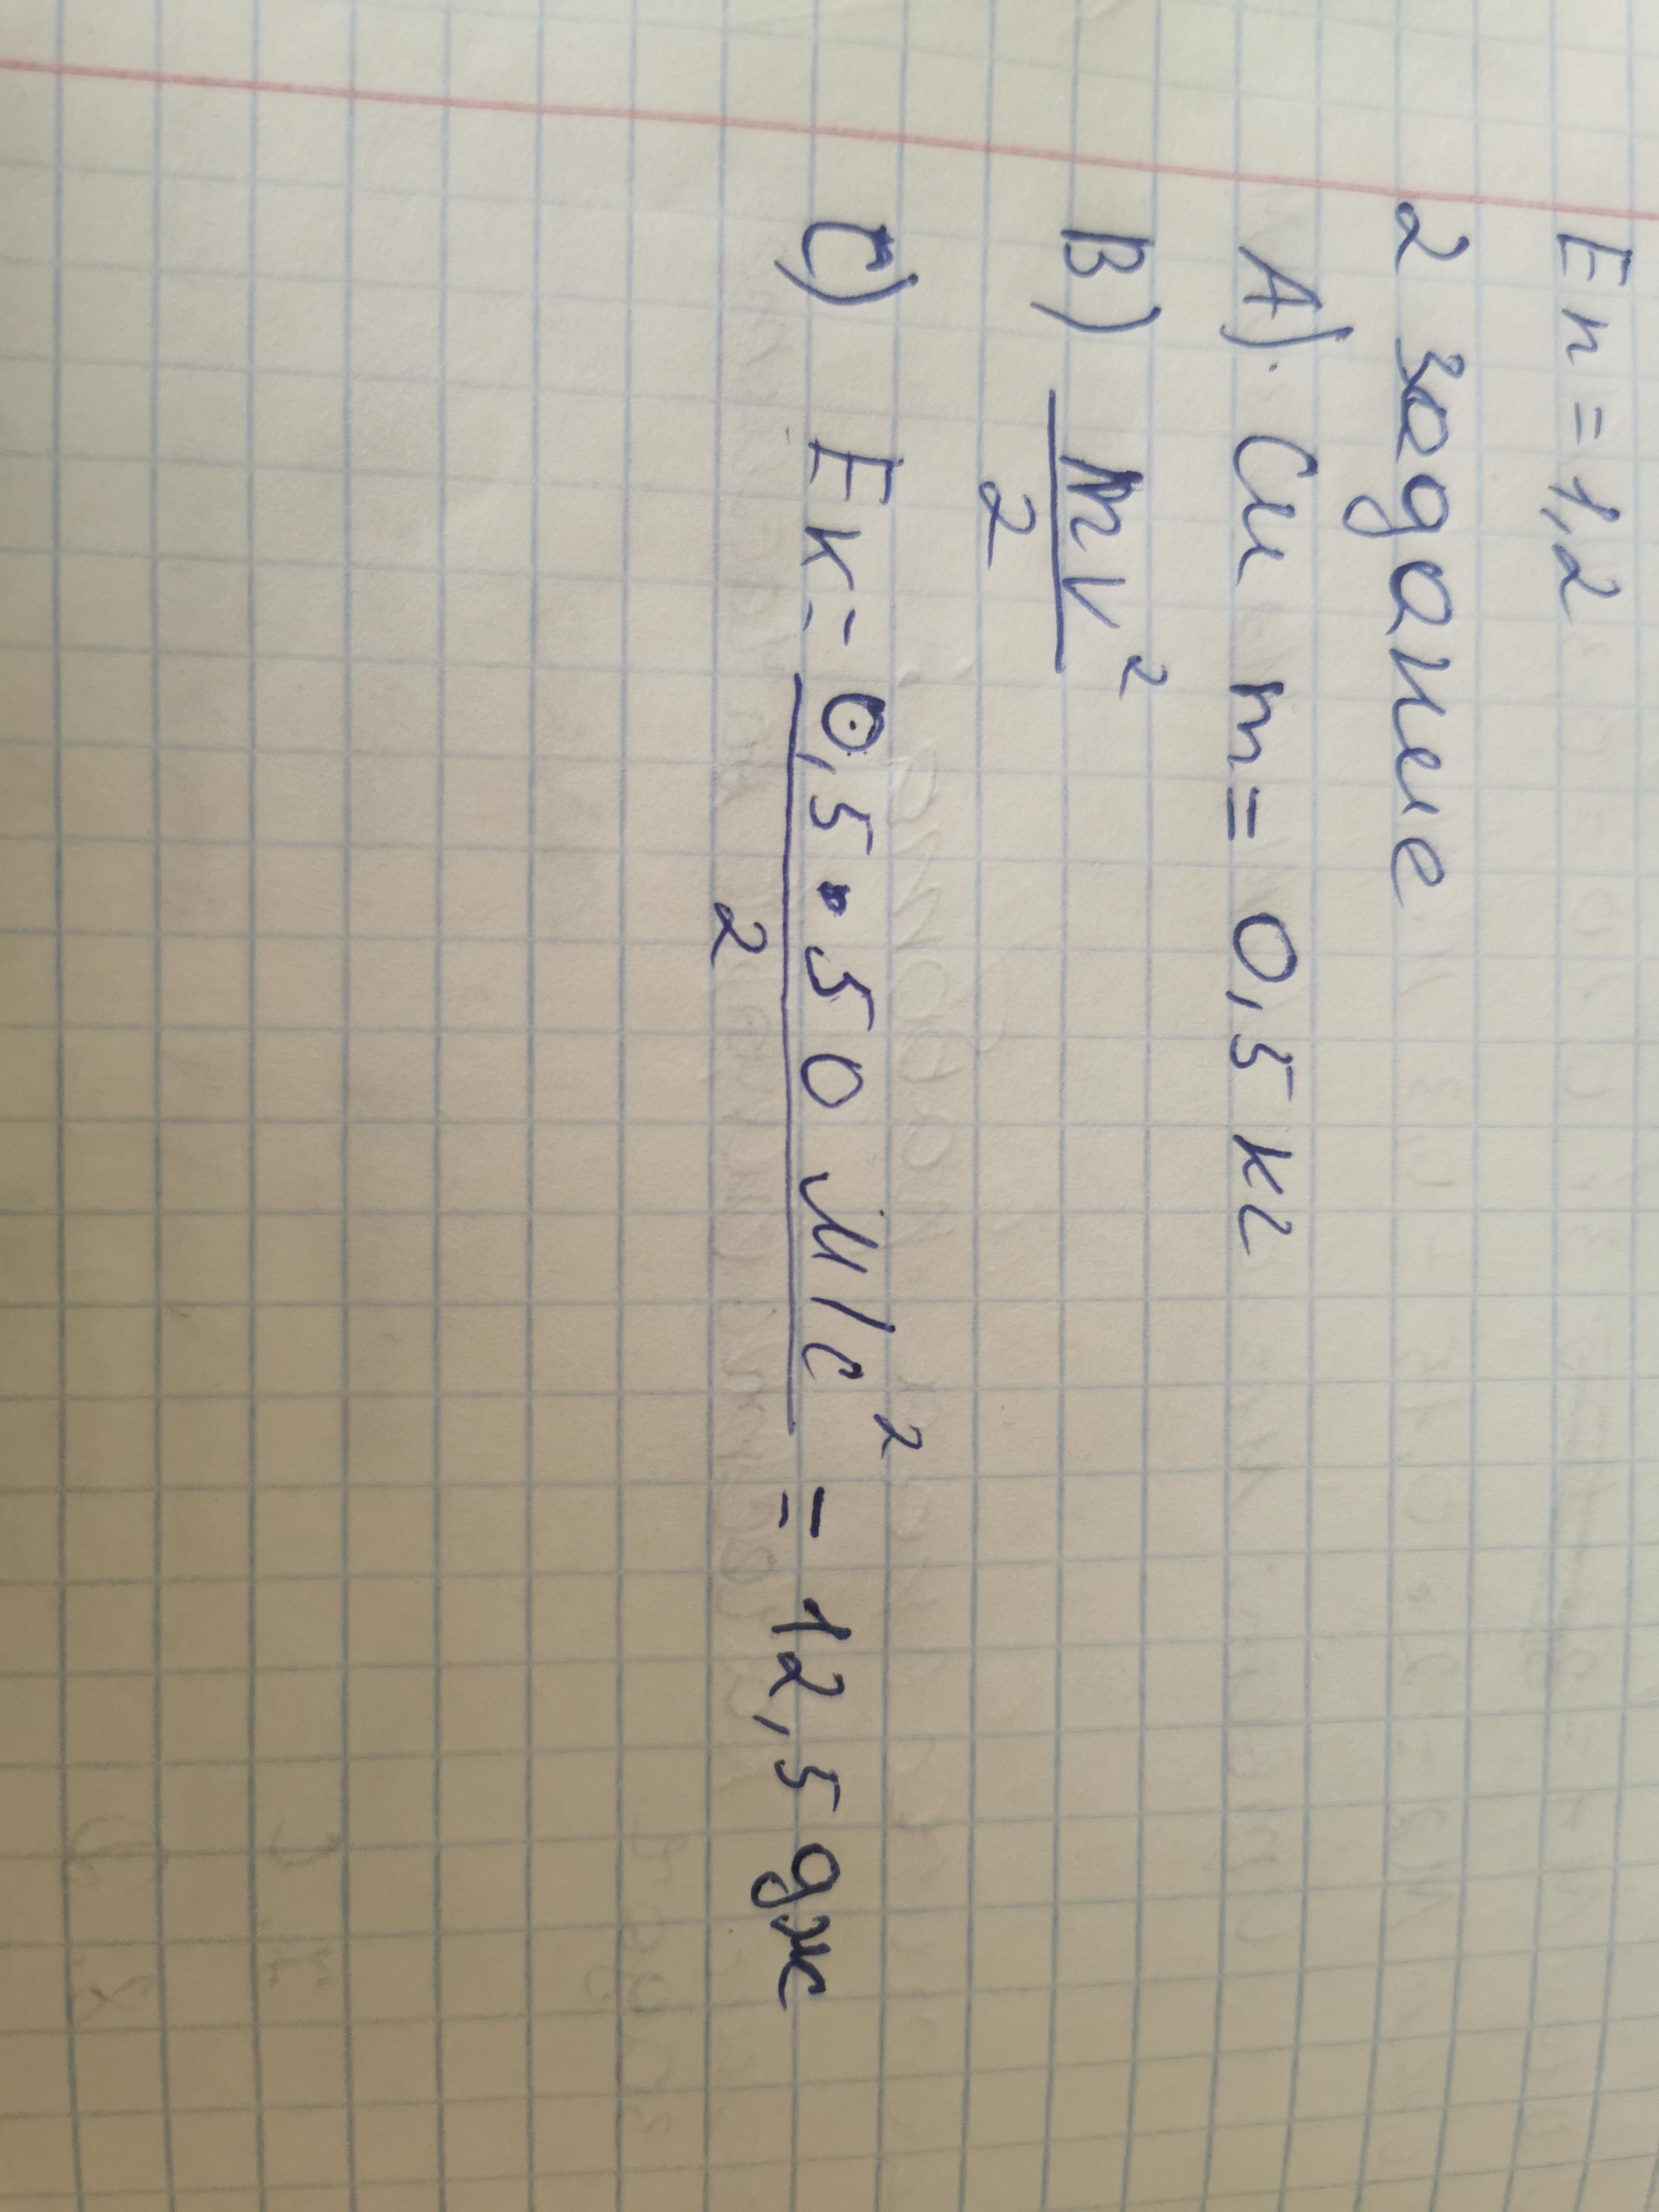 Еп = 1,2
2 задание
А). Си m = 0,5 кг
В) mv²
2
С) Ек = 0,5 • 50 м/с² = 12,5 дж
2